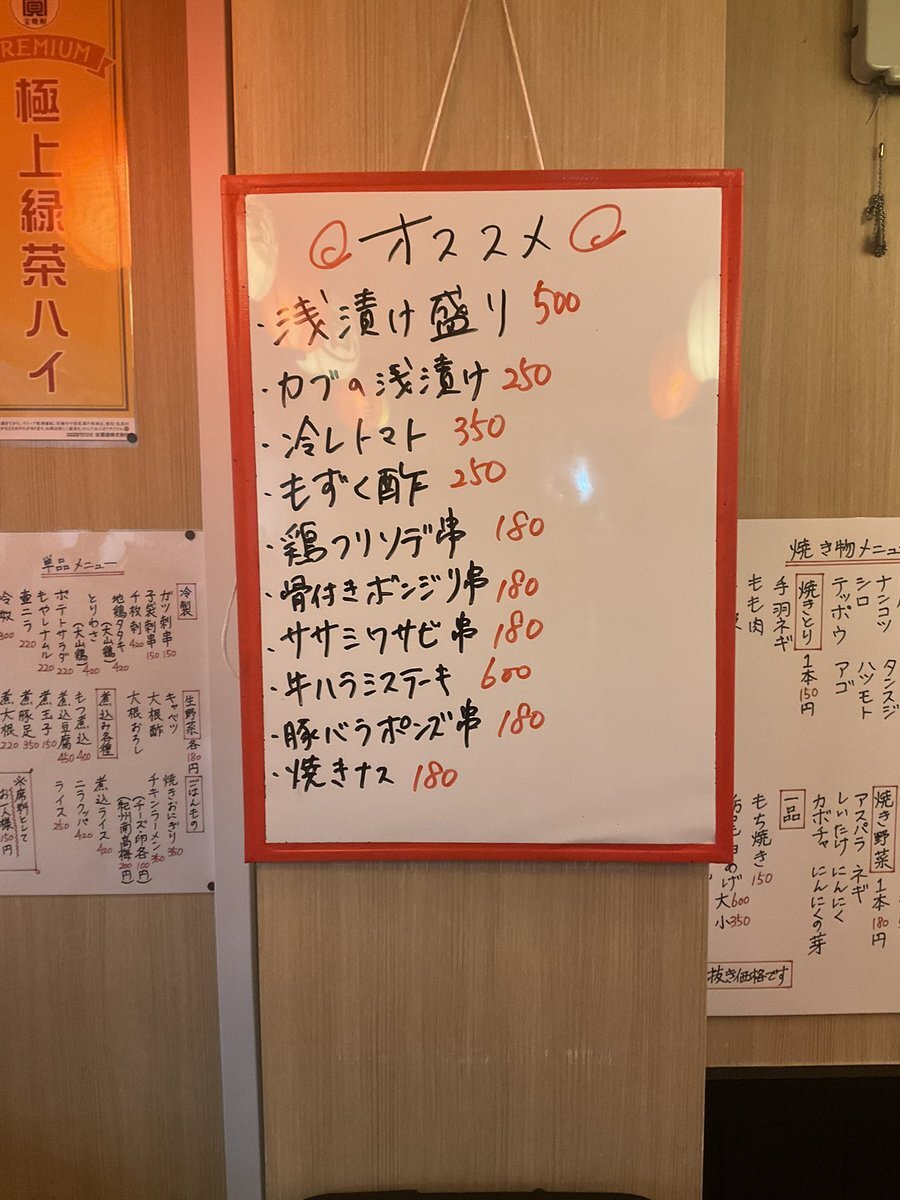 PREMIUM
極上緑茶ハイ
オススメ
・浅漬け盛り 500
・カブの浅漬け 250
・冷しトマト 350
・もずく酢 250
・鶏フリソデ串 180
・骨付きボンジリ串 180
・ササミワサビ串 180
・牛ハラミステーキ 600
・豚バラポンズ串 180
・焼きナス 180
単品メニュー
冷製
ガツ刺串 150
子袋刺串 150
千枚刺 420
地鶏タタキ
(大山鶏) 420
とりわさ
(大山鶏) 420
ポテトサラダ 220
もやしナムル 220
壺ニラ 220
冷奴 300
生野菜 各180円
キャベツ
大根酢
大根おろし
煮込み各種
もつ煮込 400
煮込豆腐 450
煮玉子 150
煮豚足 350
煮大根 220
ごはんもの
焼きおにぎり 350
チキンラーメン 350
(チーズ・卵各100円)
(紀州南高梅200円)
煮込ライス 420
ニラクッパ 420
ライス 250
※席料として
お一人様150円
焼き物メニュー
ナンコツ タンスジ
シロ ハツモト
テッポウ アゴ
焼きとり 1本150円
手羽ネギ
もも肉
焼き野菜 1本180円
アスパラ ネギ
しいたけ にんにく
カボチャ にんにくの芽
一品
もち焼き 150
大600
小350
抜き価格です